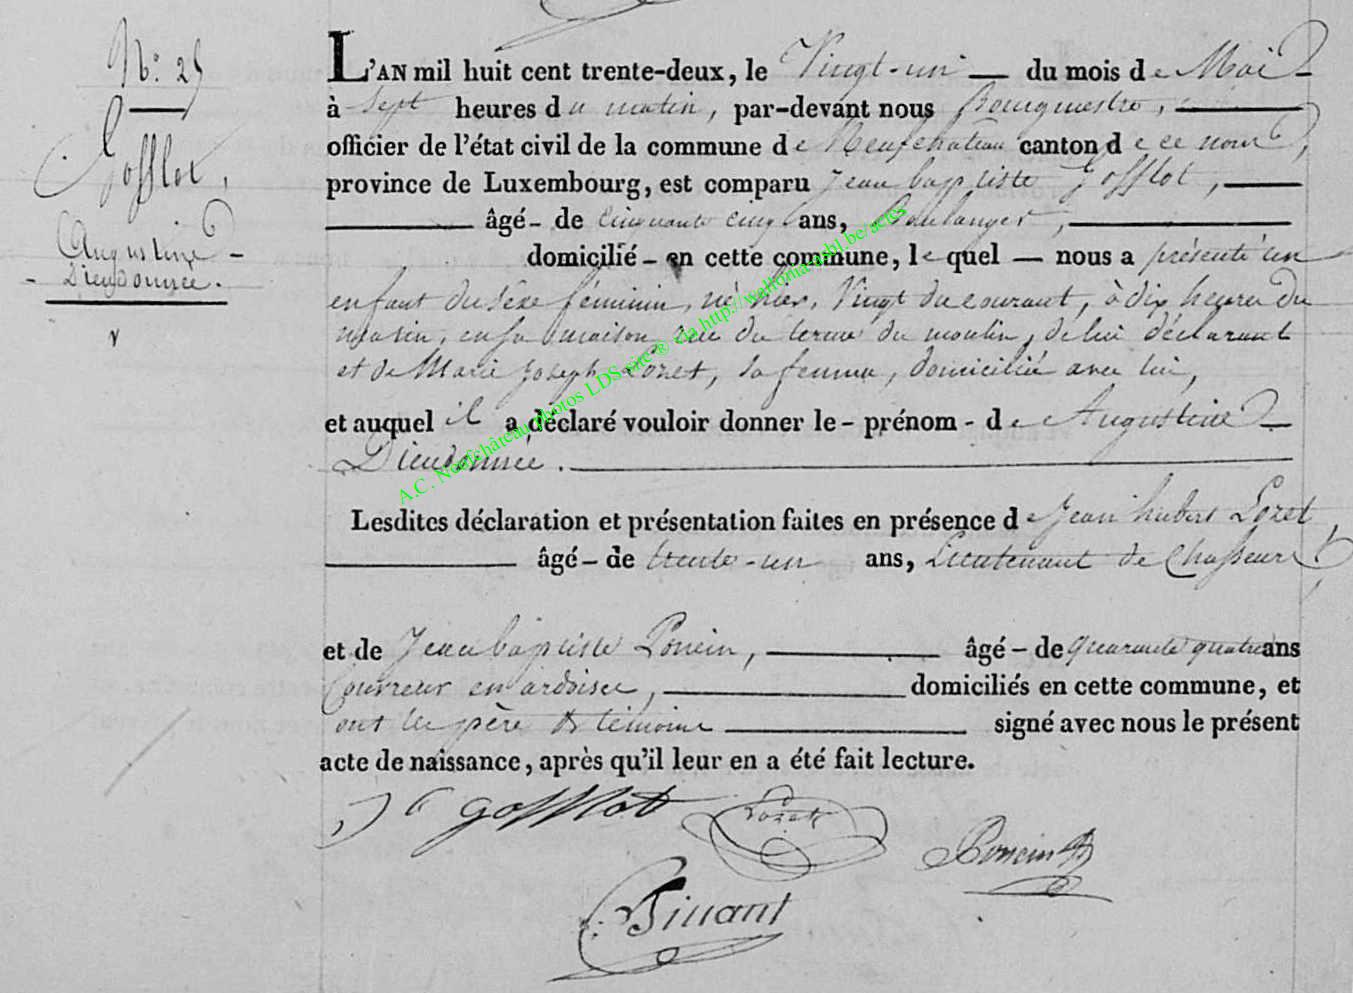 N° 25
Gofflot,
Augustine
Dieudonnée.
L'AN mil huit cent trente-deux, le Vingt-un — du mois de Mai
à sept heures du matin, par-devant nous Bourgmestre,
officier de l'état civil de la commune de Neufchateau canton de ce nom,
province de Luxembourg, est comparu Jean baptiste Gofflot,
âgé - de cinquante cinq ans, Boulanger,
domicilié - en cette commune, lequel — nous a présenté un
enfant du sexe féminin, né hier, Vingt du courant, à dix heures du
matin, en sa maison, rue du terme du moulin, de lui déclarant
et de Marie Joseph Lozet, sa femme, domiciliée avec lui,
et auquel il a déclaré vouloir donner le - prénom - de Augustine
Dieudonnée.
Lesdites déclaration et présentation faites en présence de Jean hubert Lozet,
âgé - de trente-un ans, Lieutenant de Chasseurs,
et de Jean baptiste Poncin, âgé - de quarante quatre ans
Couvreur en ardoises, domiciliés en cette commune, et
ont les père & témoins signé avec nous le présent
acte de naissance, après qu'il leur en a été fait lecture.
gofflot
Lozet
Poncin
A.C. Neufchâteau photos LDS site ® via http://walloma-asbl.be/actes